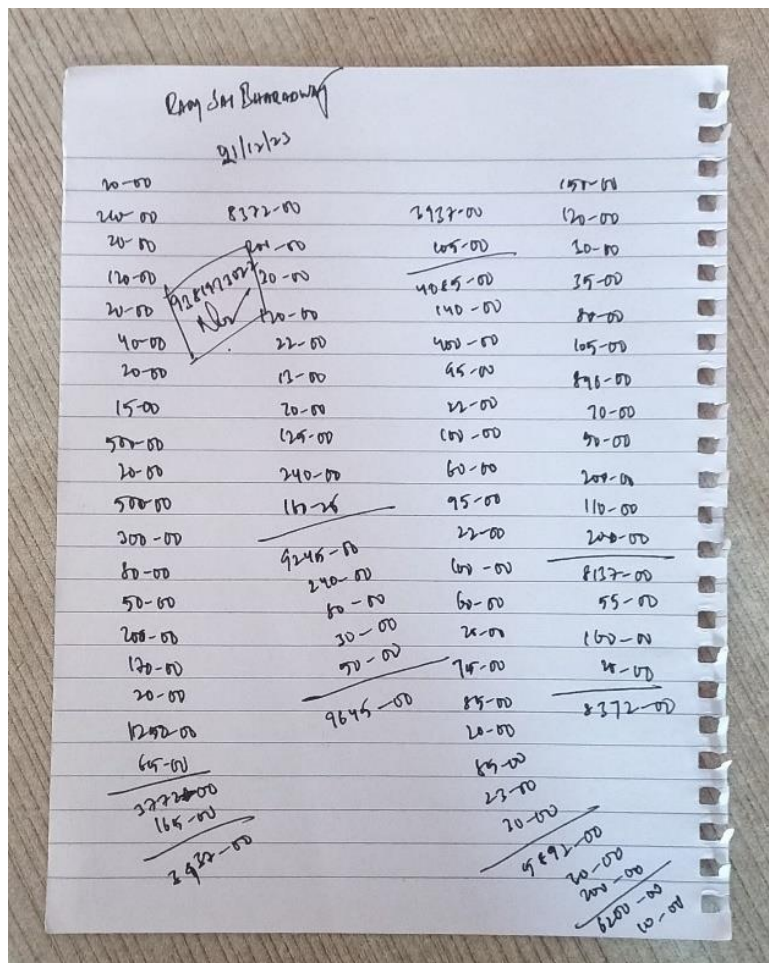 RAM SAI BHARADWAJ
21/12/23
20-00
240-00
20-00
120-00
20-00
40-00
20-00
15-00
500-00
20-00
500-00
300-00
80-00
50-00
200-00
170-00
20-00
1292-00
65-00
3772-00
165-00
3937-00
8372-00
20-00
120-00
22-00
13-00
20-00
125-00
240-00
9245-00
240-00
80-00
30-00
50-00
9645-00
3937-00
105-00
140-00
400-00
95-00
22-00
100-00
60-00
95-00
22-00
100-00
60-00
25-00
75-00
85-00
20-00
85-00
23-00
30-00
5892-00
200-00
6200-00
10-00
150-00
120-00
30-00
35-00
80-00
105-00
896-00
70-00
50-00
200-00
110-00
200-00
8137-00
55-00
160-00
8372-00